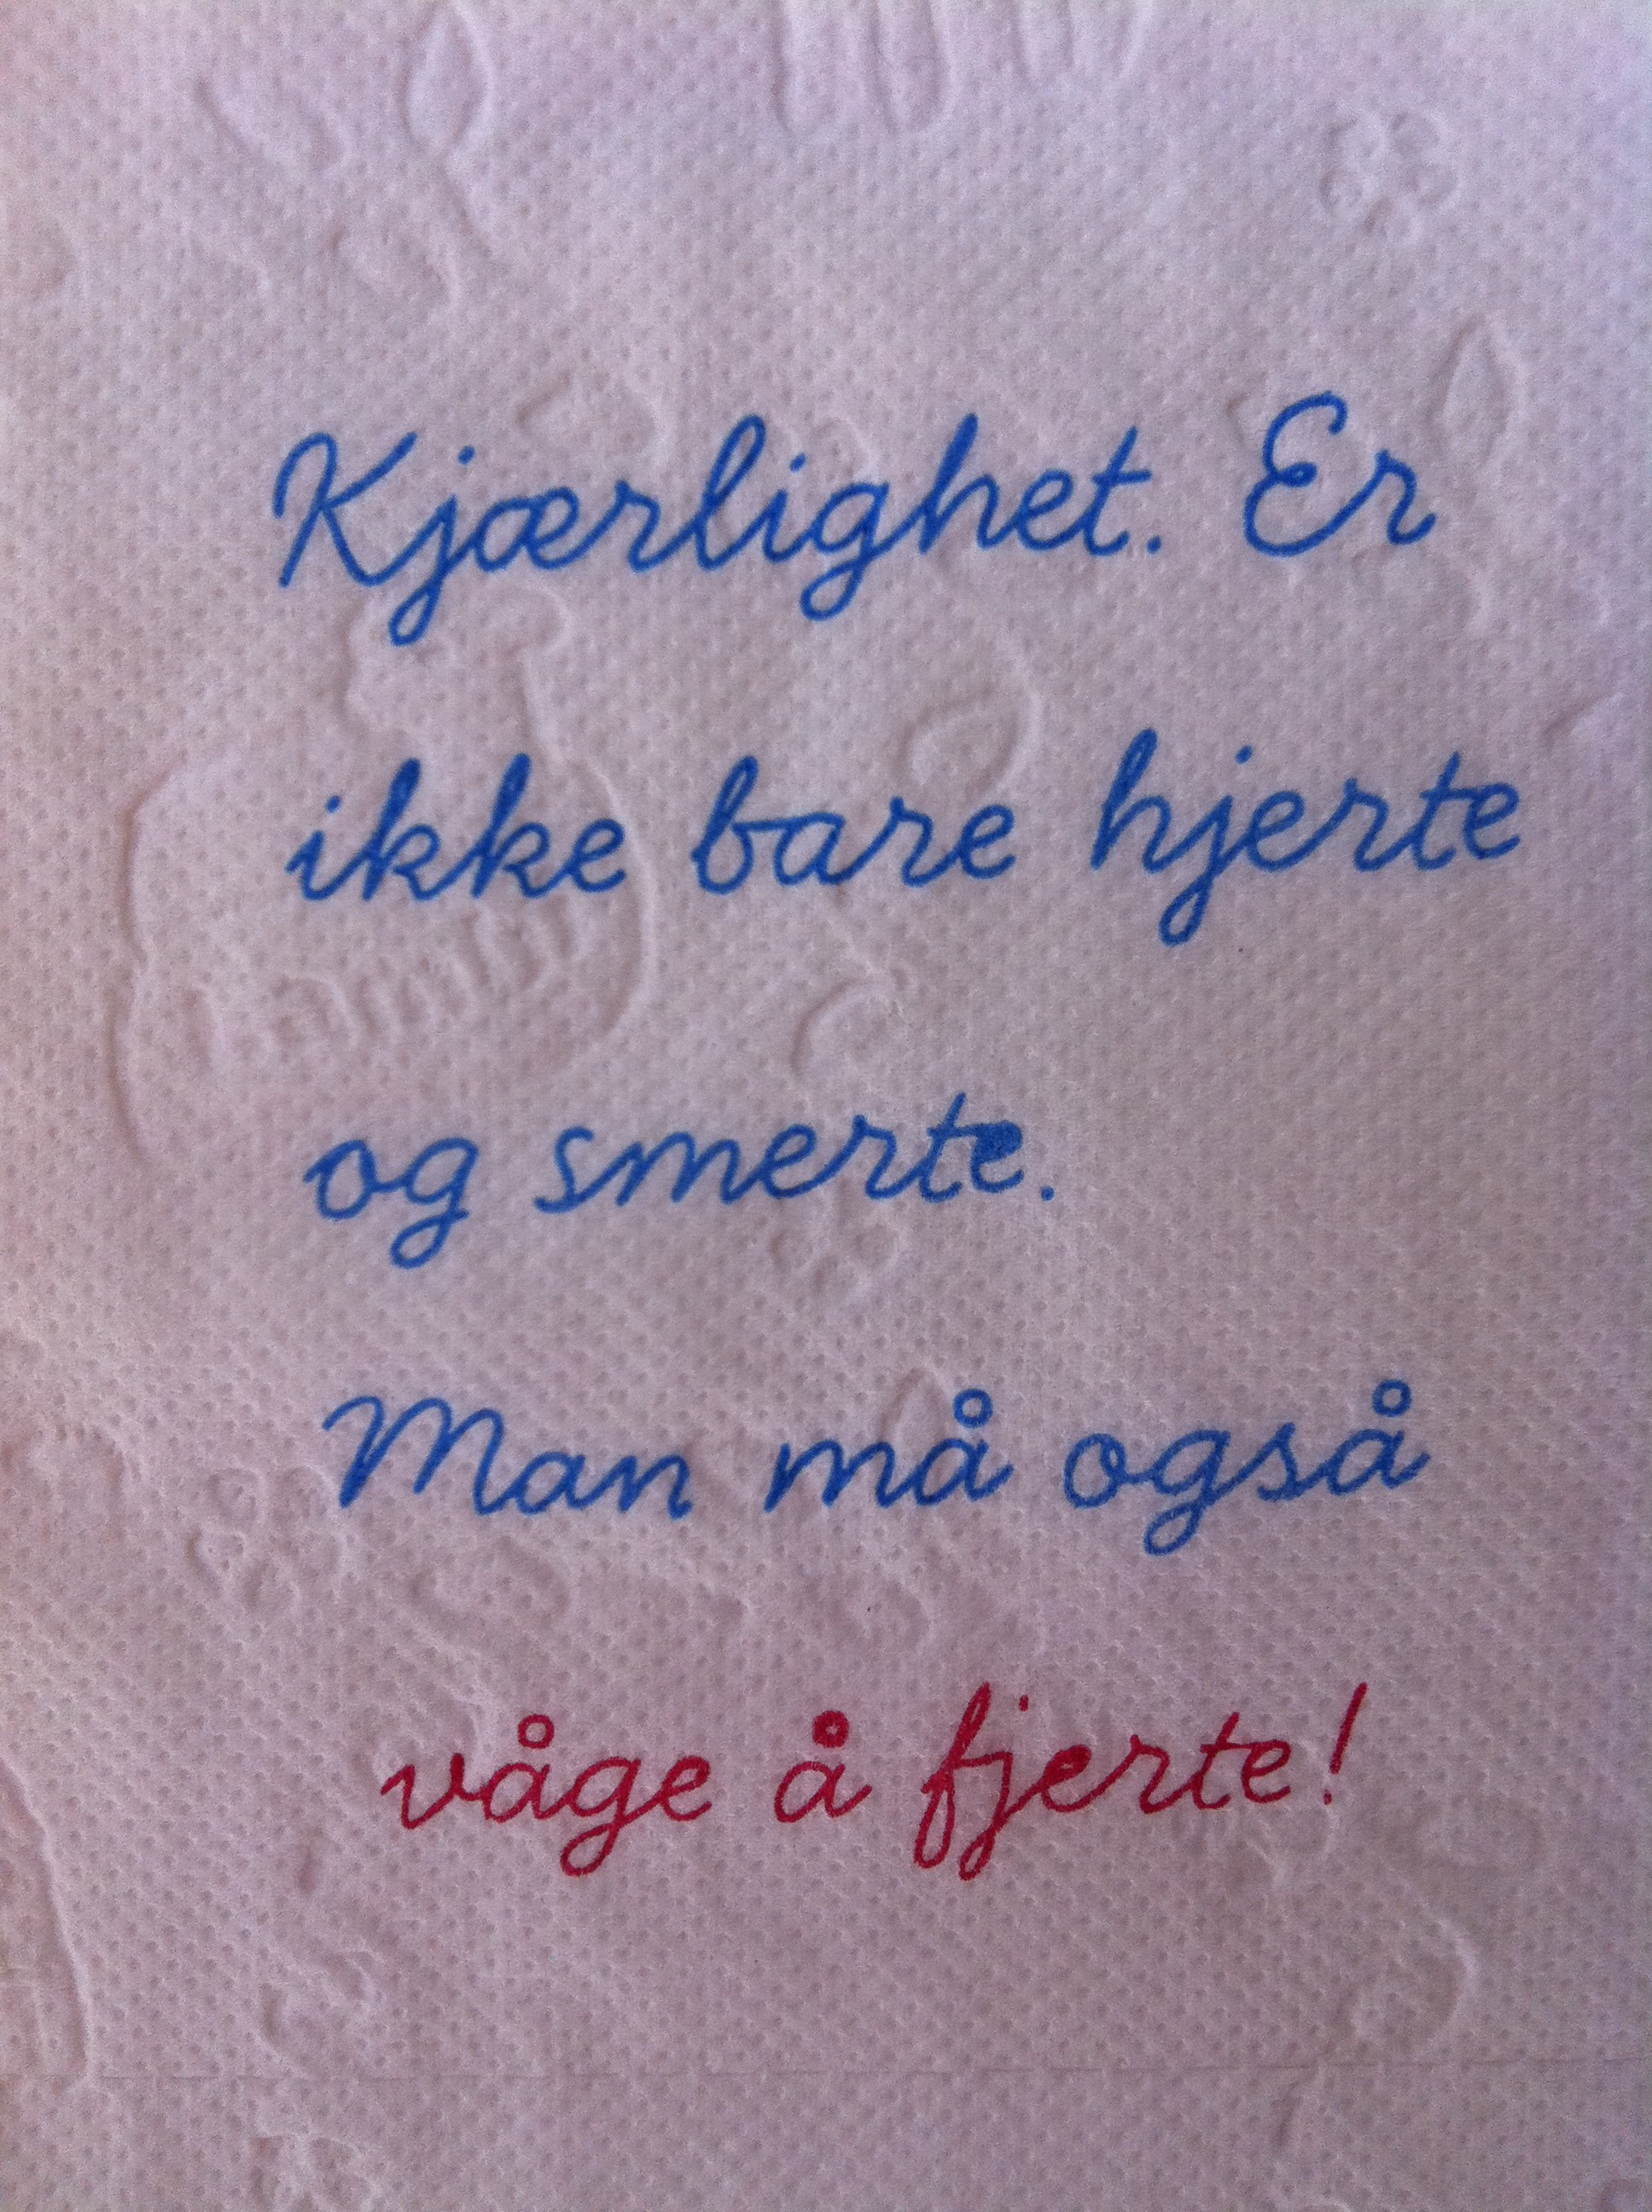 Kjærlighet. Er
ikke bare hjerte
og smerte.
Man må også
våge å fjerte!